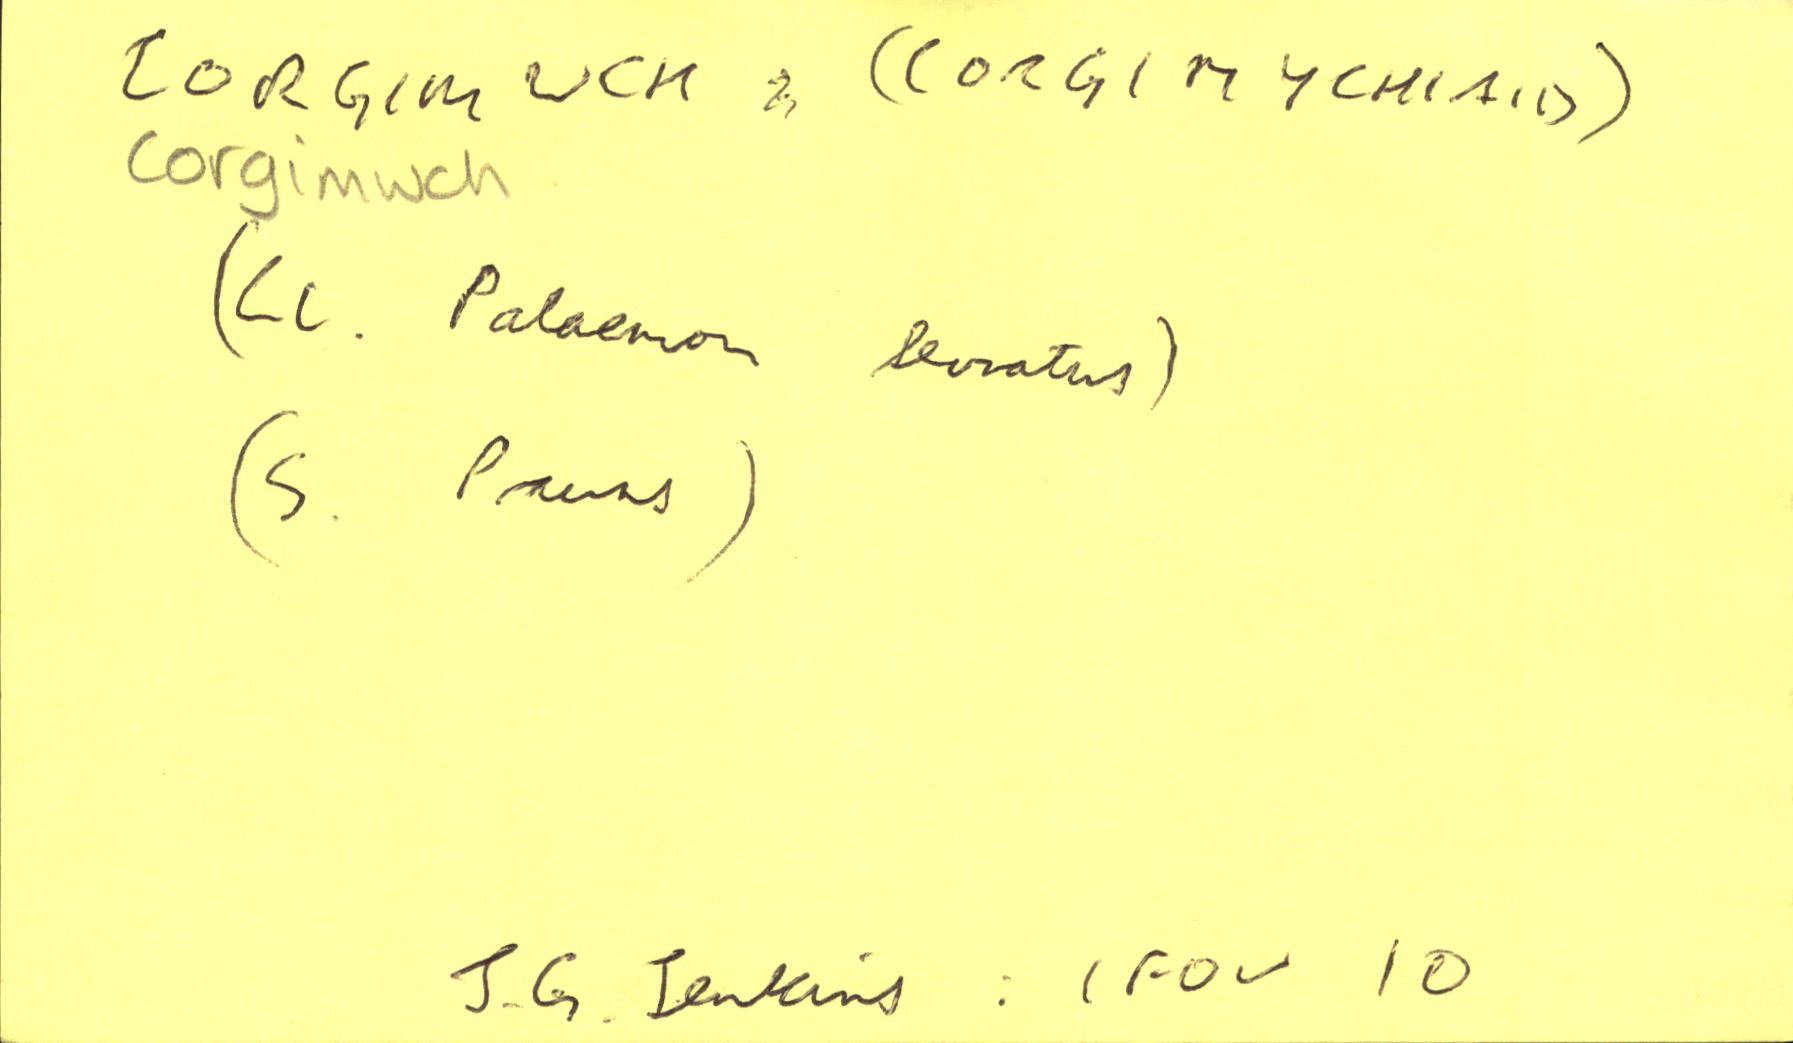 CORGIMWCH : (CORGIMYCHIAID)
corgimwch
(Ll. Palaemon serratus)
(S. Prawns)
J.G. Jenkins : 10